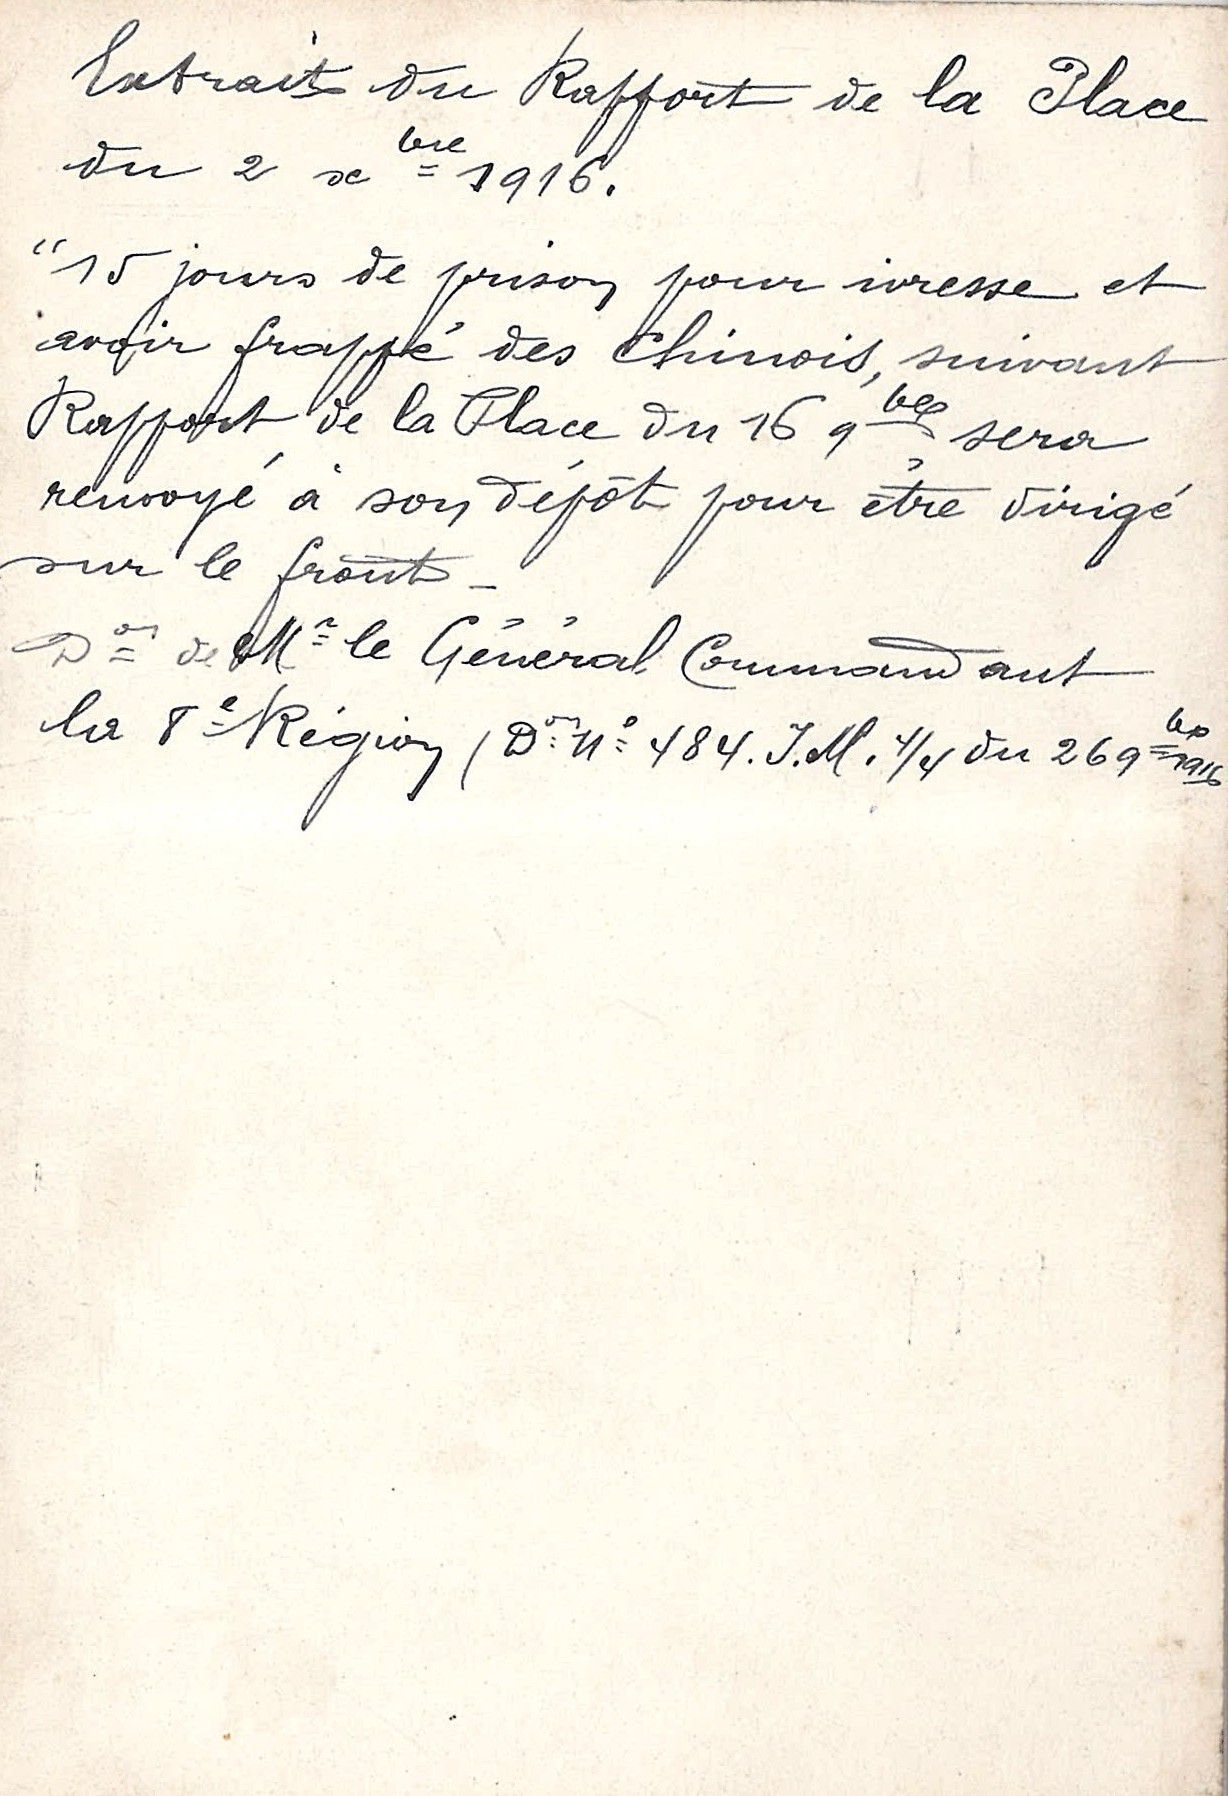 Extrait du Rapport de la Place
du 2 xbre 1916.
"15 jours de prison pour ivresse et
avoir frappé des Chinois, suivant
Rapport de la Place du 16 9bre sera
renvoyé à son dépôt pour être dirigé
sur le front –
Don de Mr le Général Commandant
la 8e Région (Don No 484. J.M. 4/4 du 26 9bre 1916